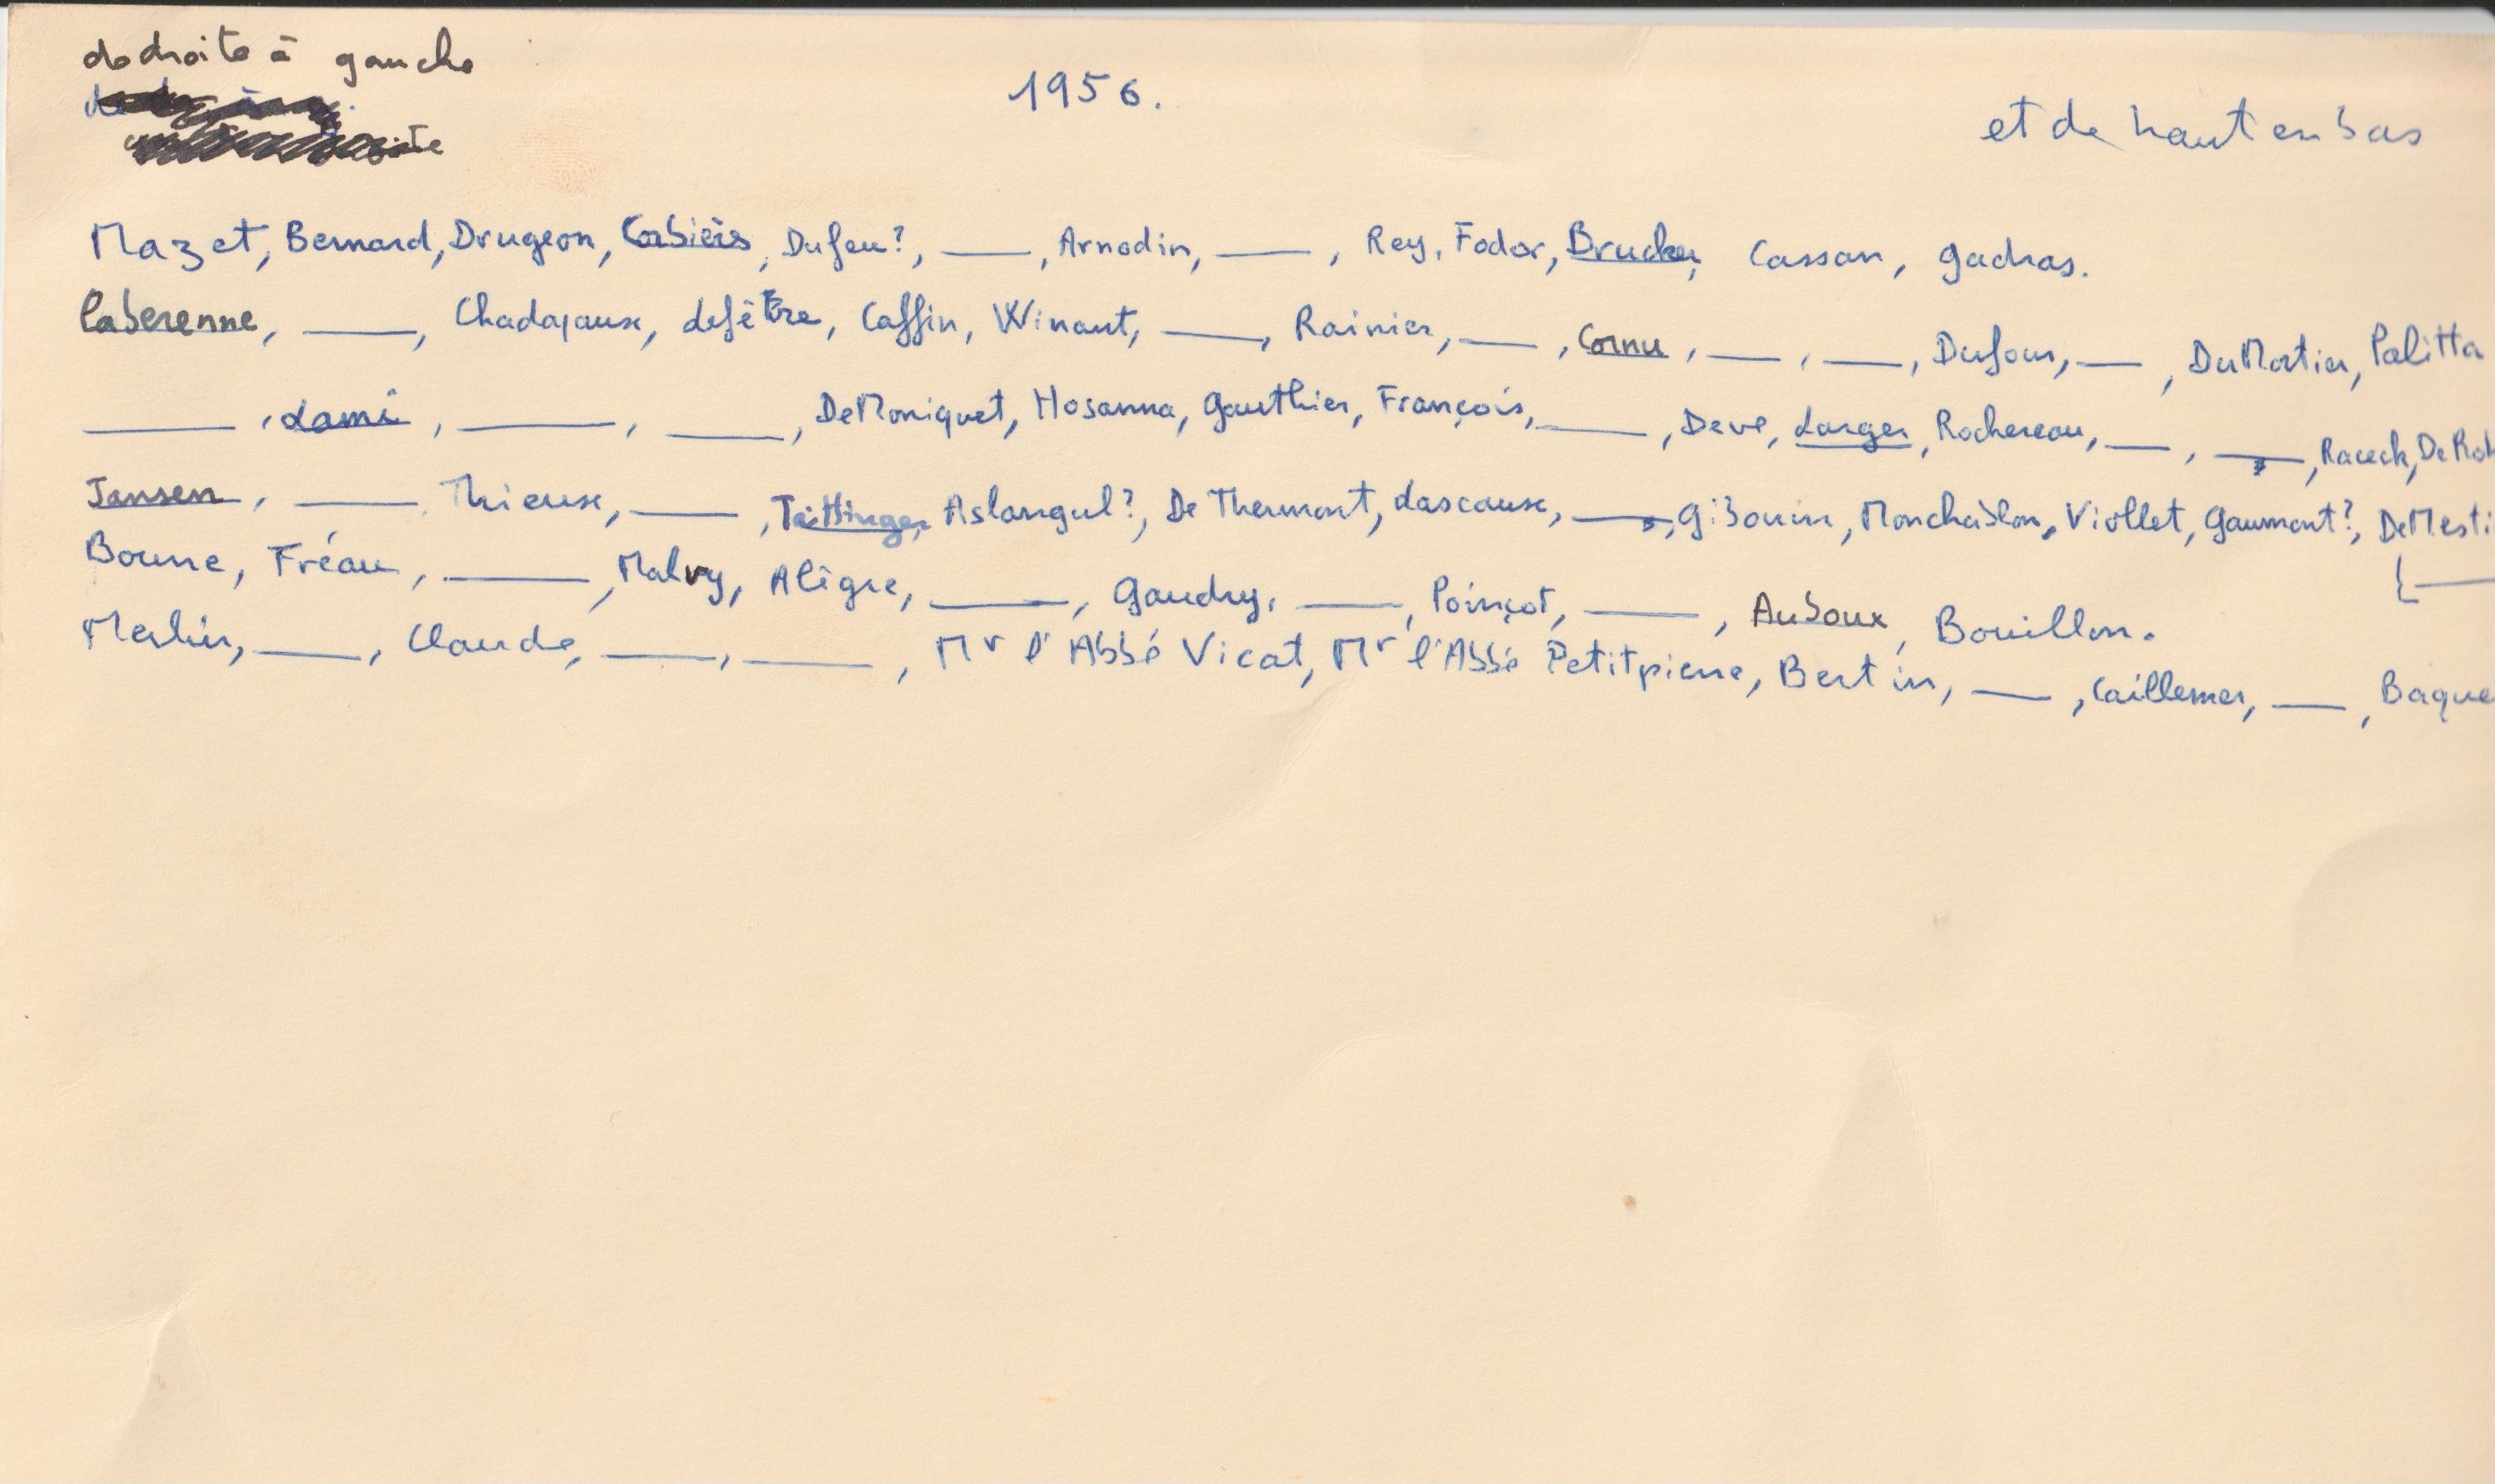 de droite à gauche
1956.
et de haut en bas
Mazet, Bernard, Drugeon, Corbière, Dufeu?, ___, Arnodin, ___, Rey, Fodor, Brucker, Cassan, Gadras.
Laberenne, ___, Chadajaux, Lefêtre, Caffin, Winant, ___, Rainier, ___, Cornu, ___, ___, Dufour, ___, DuMortier, Palitta
___, Lami, ___, ___, DeMoniquet, Hosanna, Gauthier, François, ___, Deve, Larger, Rochereau, ___, ___, Raceck, De Rob
Jansen, ___, Thieux, ___, Taittinger, Aslangul?, De Thermont, Lascaux, ___, Gibouin, Monchablon, Viollet, Gaumont?, DeMesti
Bourre, Fréau, ___, Malvy, Alègre, ___, Gaudry, ___, Poinçot, ___, Auboux, Bouillon.
Merlin, ___, Claude, ___, ___, Mr l'Abbé Vicat, Mr l'Abbé Petitpierre, Bertin, ___, Caillemer, ___, Baque